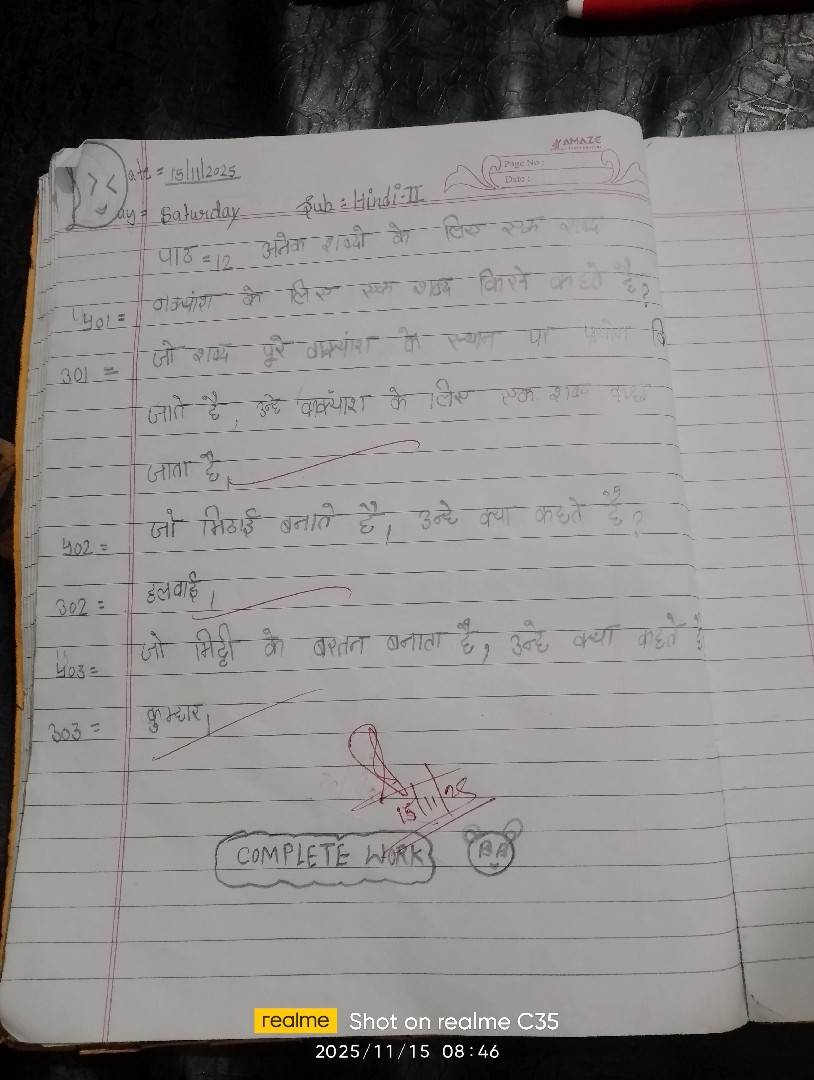 AMAZE
Page No :
Date :
ate = 15/11/2025
ay = Saturday Sub = Hindi-II
पाठ = 12 अनेक शब्दो के लिए एक शब्द
प्र01 = वाक्यांश के लिए एक शब्द किसे कहते है?
उ01 = जो शब्द पूरे वाक्यांश के स्थान पर प्रयोग कि
जाते है, उन्हे वाक्यॉंश के लिए एक शब्द कहा
जाता है,
प्र02 = जो मिठाई बनाते है, उन्हे क्या कहते है?
उ02 = हलवाई,
प्र03 = जो मिट्टी के बरतन बनाता है, उन्हे क्या कहते है
उ03 = कुम्हार,
15/11/25
COMPLETE WORK
realme Shot on realme C35
2025/11/15 08:46